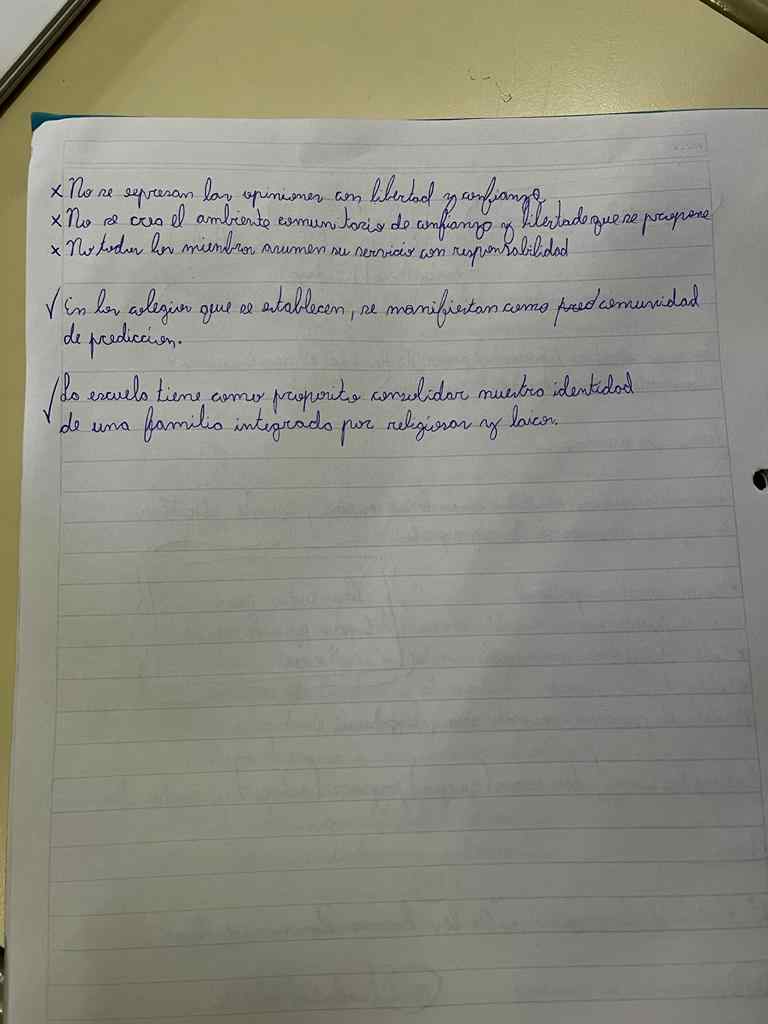 x No se expresan las opiniones con libertad y confianza
x No se crea el ambiente comunitario de confianza y libertade que se propone
x No todos los miembros asumen su servicio con responsabilidad
√ En los colegios que se establecen, se manifiestan como pred comunidad
de prediccion.
√ La escuela tiene como proposito consolidar nuestra identidad
de una familia integrada por religiosas y laicos.